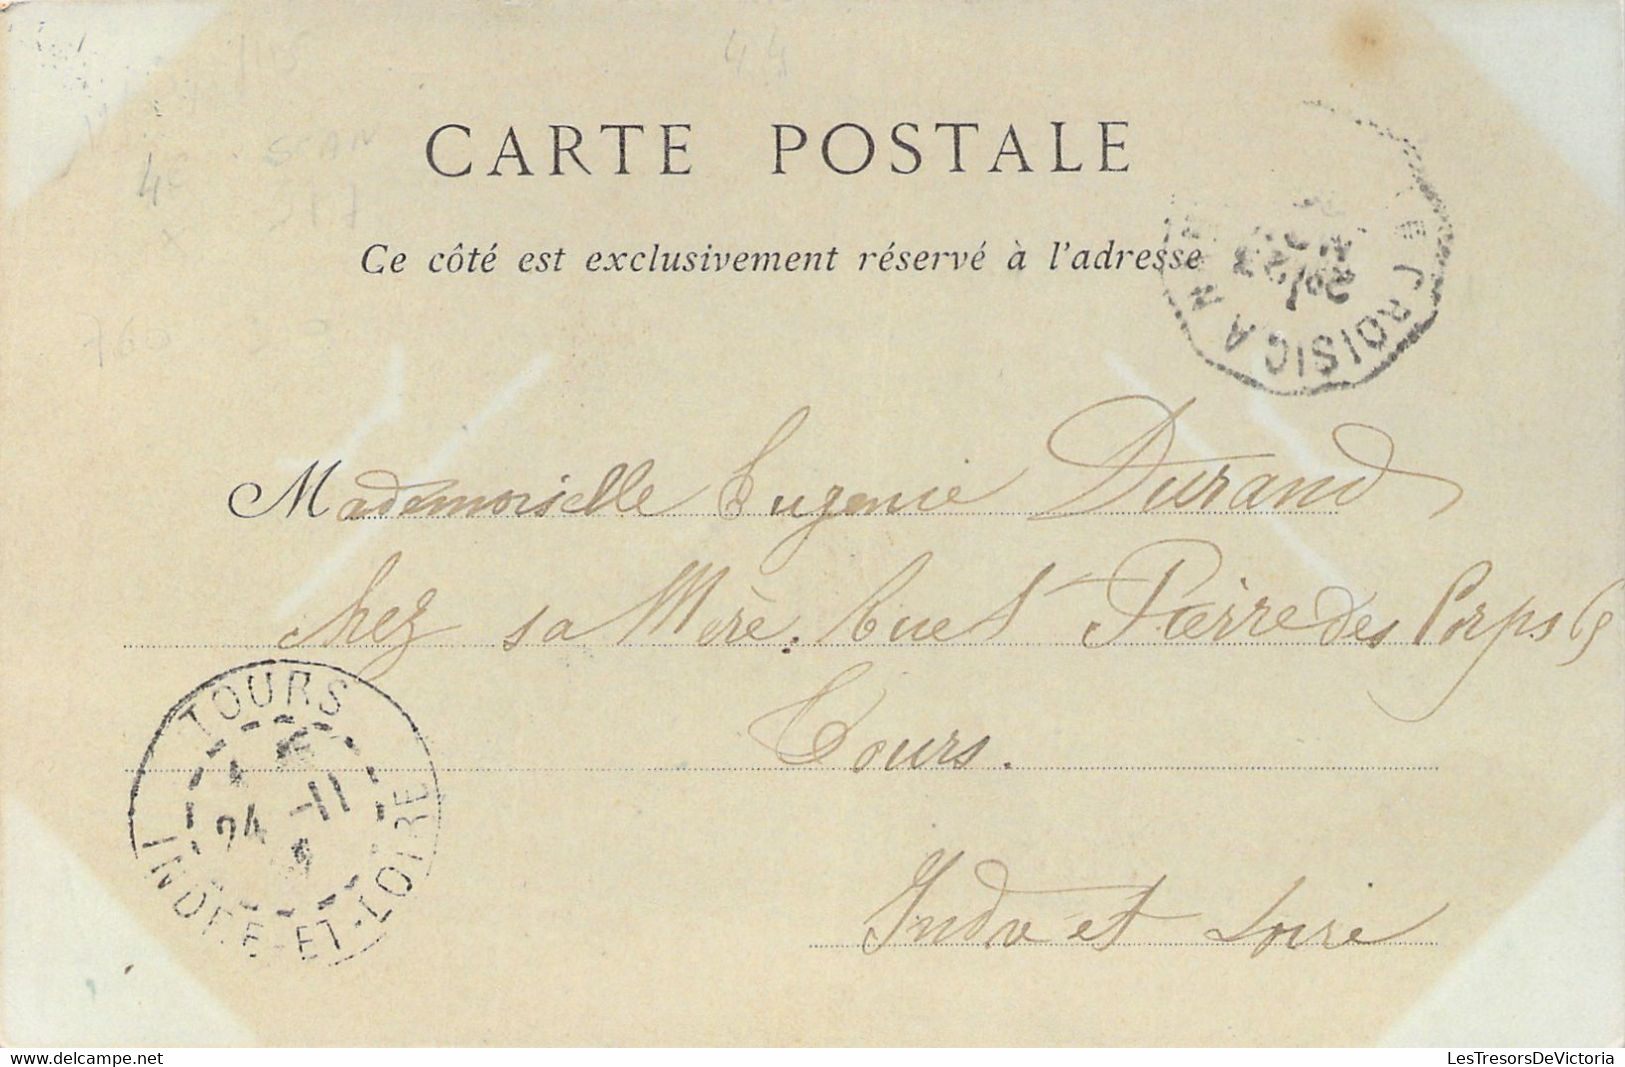 44
CARTE POSTALE
Ce côté est exclusivement réservé à l'adresse
LE CROISIC A N
Mademoiselle Eugenie Durand
chez sa Mère. Rue St Pierre des Corps 65
Tours.
Indre et Loire
TOURS
24 -11
INDRE-ET-LOIRE
760
LesTresorsDeVictoria